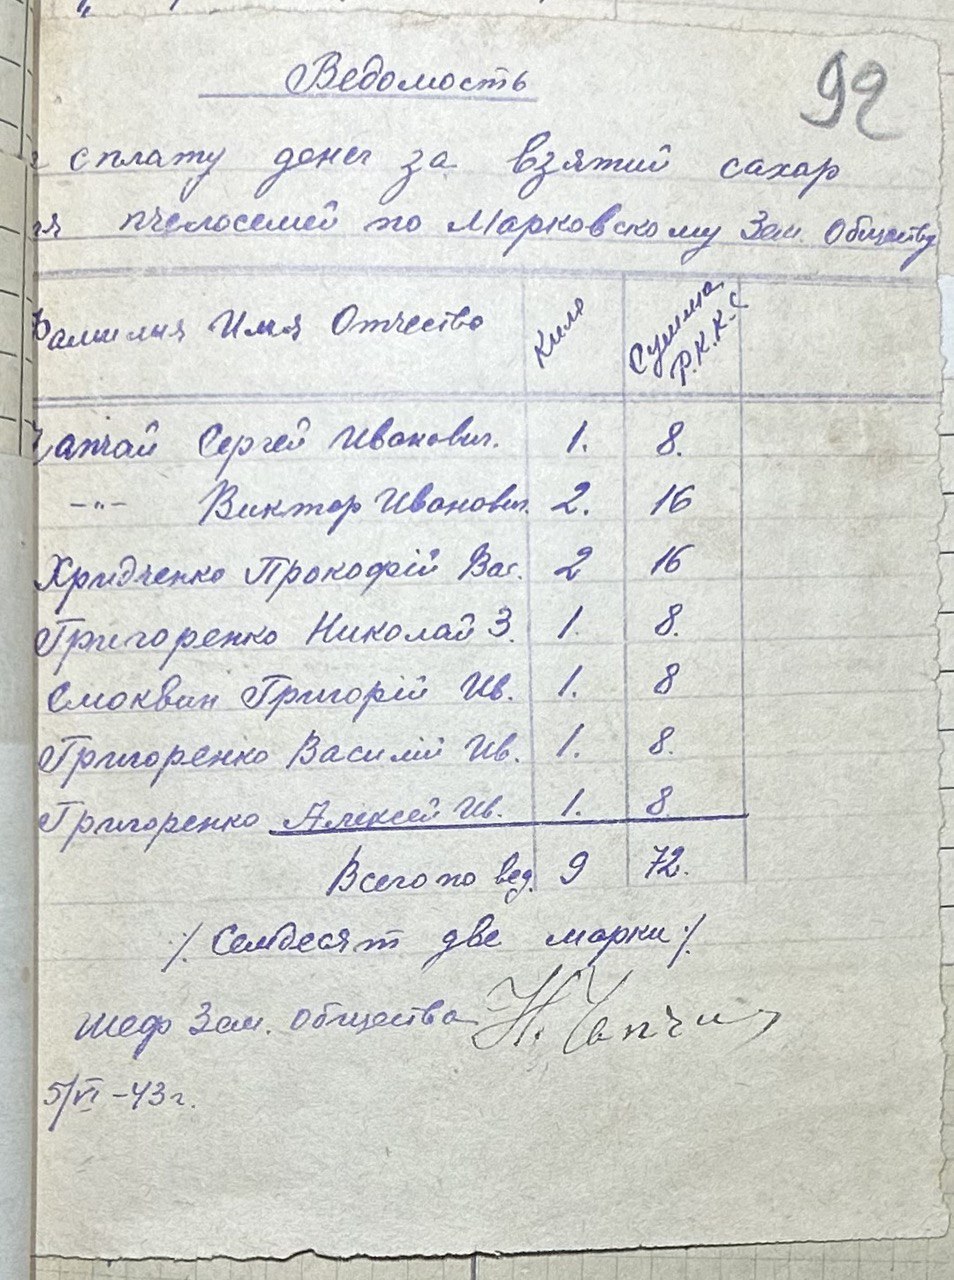 92
Ведомость
сплату денег за взятий сахар
пчелосемей по Марковскому Зем. Обществу
Фамилия Имя Отчество Кило Сумма Р.К.К.С
Сергей Иванович. 1. 8.
-"- Виктор Иванович 2. 16
Прокофій Вас. 2 16
Григоренко Николай З. 1. 8.
Смоквин Григорій Ив. 1. 8
Григоренко Василій Ив. 1. 8.
Григоренко Алексей Ив. 1. 8
Всего по вед. 9 72.
/ Семдесят две марки /.
шеф Зем. общества Н.
5/VI -43 г.